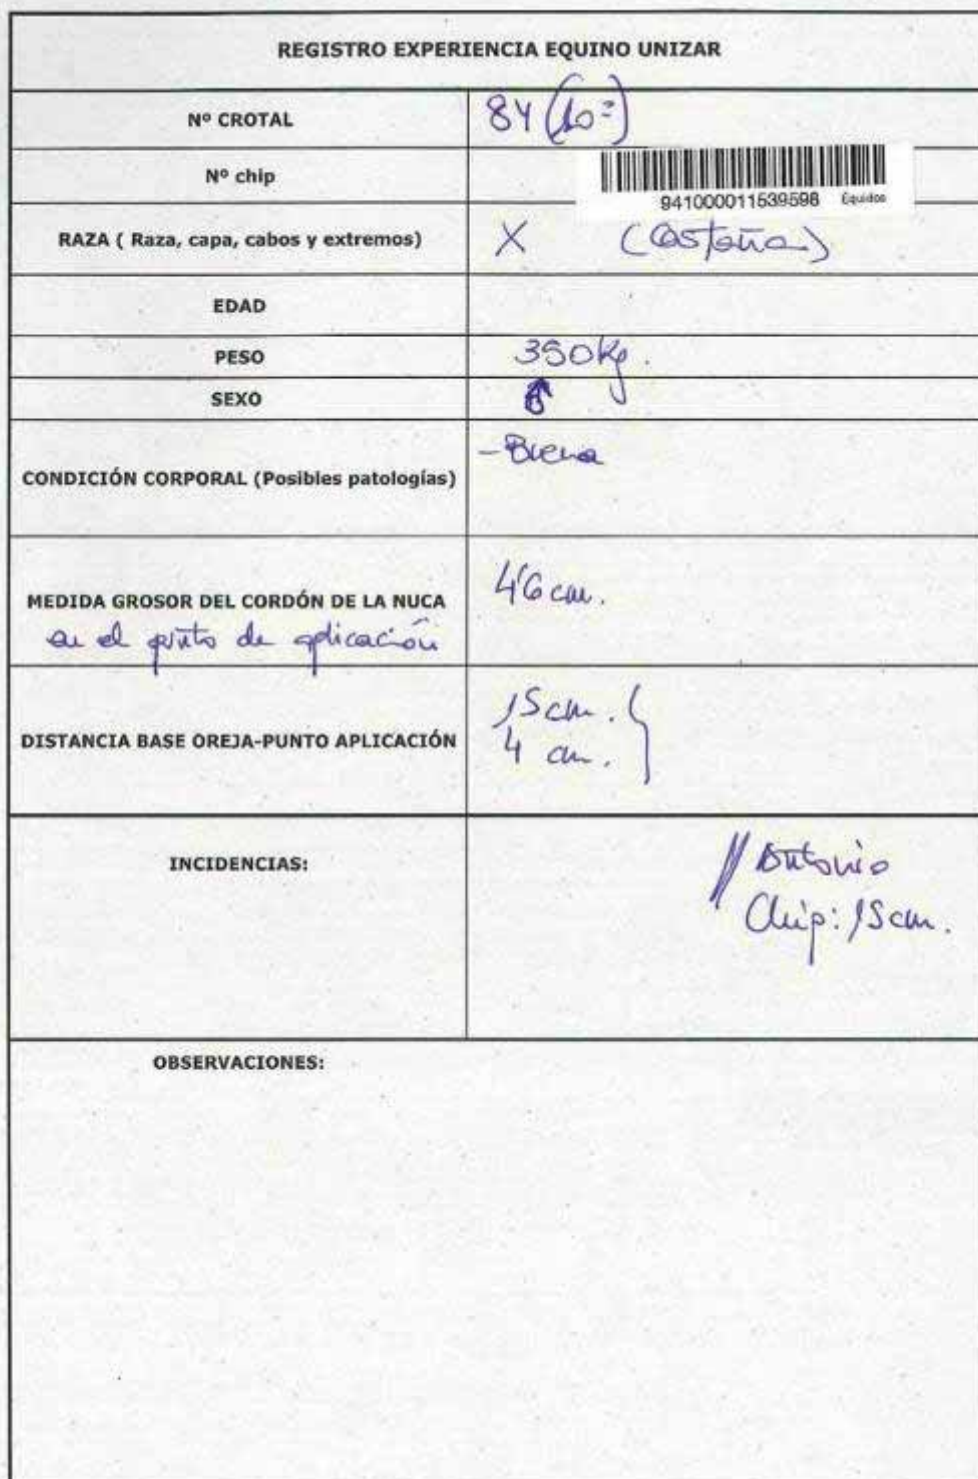 REGISTRO EXPERIENCIA EQUINO UNIZAR
Nº CROTAL 84 (10=)
Nº chip
941000011539598 Équidos
RAZA ( Raza, capa, cabos y extremos) X (Castaña)
EDAD
PESO 350kg.
SEXO
CONDICIÓN CORPORAL (Posibles patologías) -Buena
MEDIDA GROSOR DEL CORDÓN DE LA NUCA 4'6 cm.
en el punto de aplicación
DISTANCIA BASE OREJA-PUNTO APLICACIÓN
15cm.
4 cm.
INCIDENCIAS:
// Antonio
Chip: 15cm.
OBSERVACIONES: